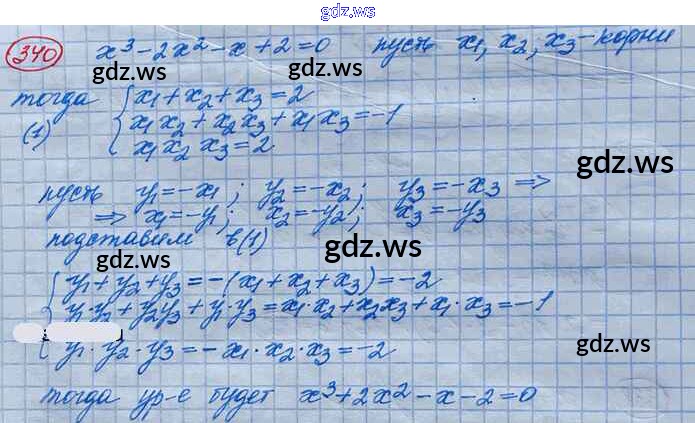 gdz.ws
340 x³-2x²-x+2=0 пусть x₁, x₂, x₃-корни
gdz.ws gdz.ws
тогда { x₁+x₂+x₃=2
(1) x₁x₂+x₂x₃+x₁x₃=-1
x₁x₂x₃=2
gdz.ws
пусть y₁=-x₁; y₂=-x₂; y₃=-x₃ ⇒
⇒ x₁=-y₁; x₂=-y₂; x₃=-y₃
подставим в(1)
gdz.ws
{ y₁+y₂+y₃=-(x₁+x₂+x₃)=-2
y₁·y₂+y₂y₃+y₁·y₃=x₁·x₂+x₂x₃+x₁·x₃=-1
y₁·y₂·y₃=-x₁·x₂·x₃=-2
gdz.ws
gdz.ws
тогда ур-е будет x³+2x²-x-2=0